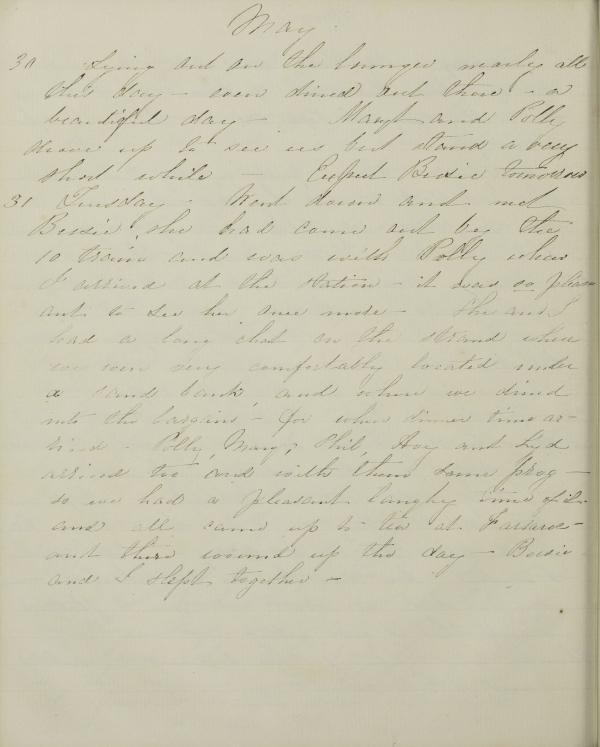 May
30 Lying out on the lounger nearly all
this day - even dined out there - a
beautiful day - Mary and Polly
drove up to see us but stand a very
short while - Expect Bessie tomorrow
31 Tuesday - Went down and met
Bessie, she had come out by the
10 train and was with Polly when
I arrived at the station - it was so pleas
ant to see her once more - She and I
had a long chat on the strand where
we were very comfortably located under
a sand bank, and where we dined
into the bargain - for when dinner time ar-
rived - Polly, Mary, Phil, and
arrived too and with them some prog -
so we had a pleasant laughy time of it -
and all came up to tea at
and there wound up the day - Bessie
and I slept together -